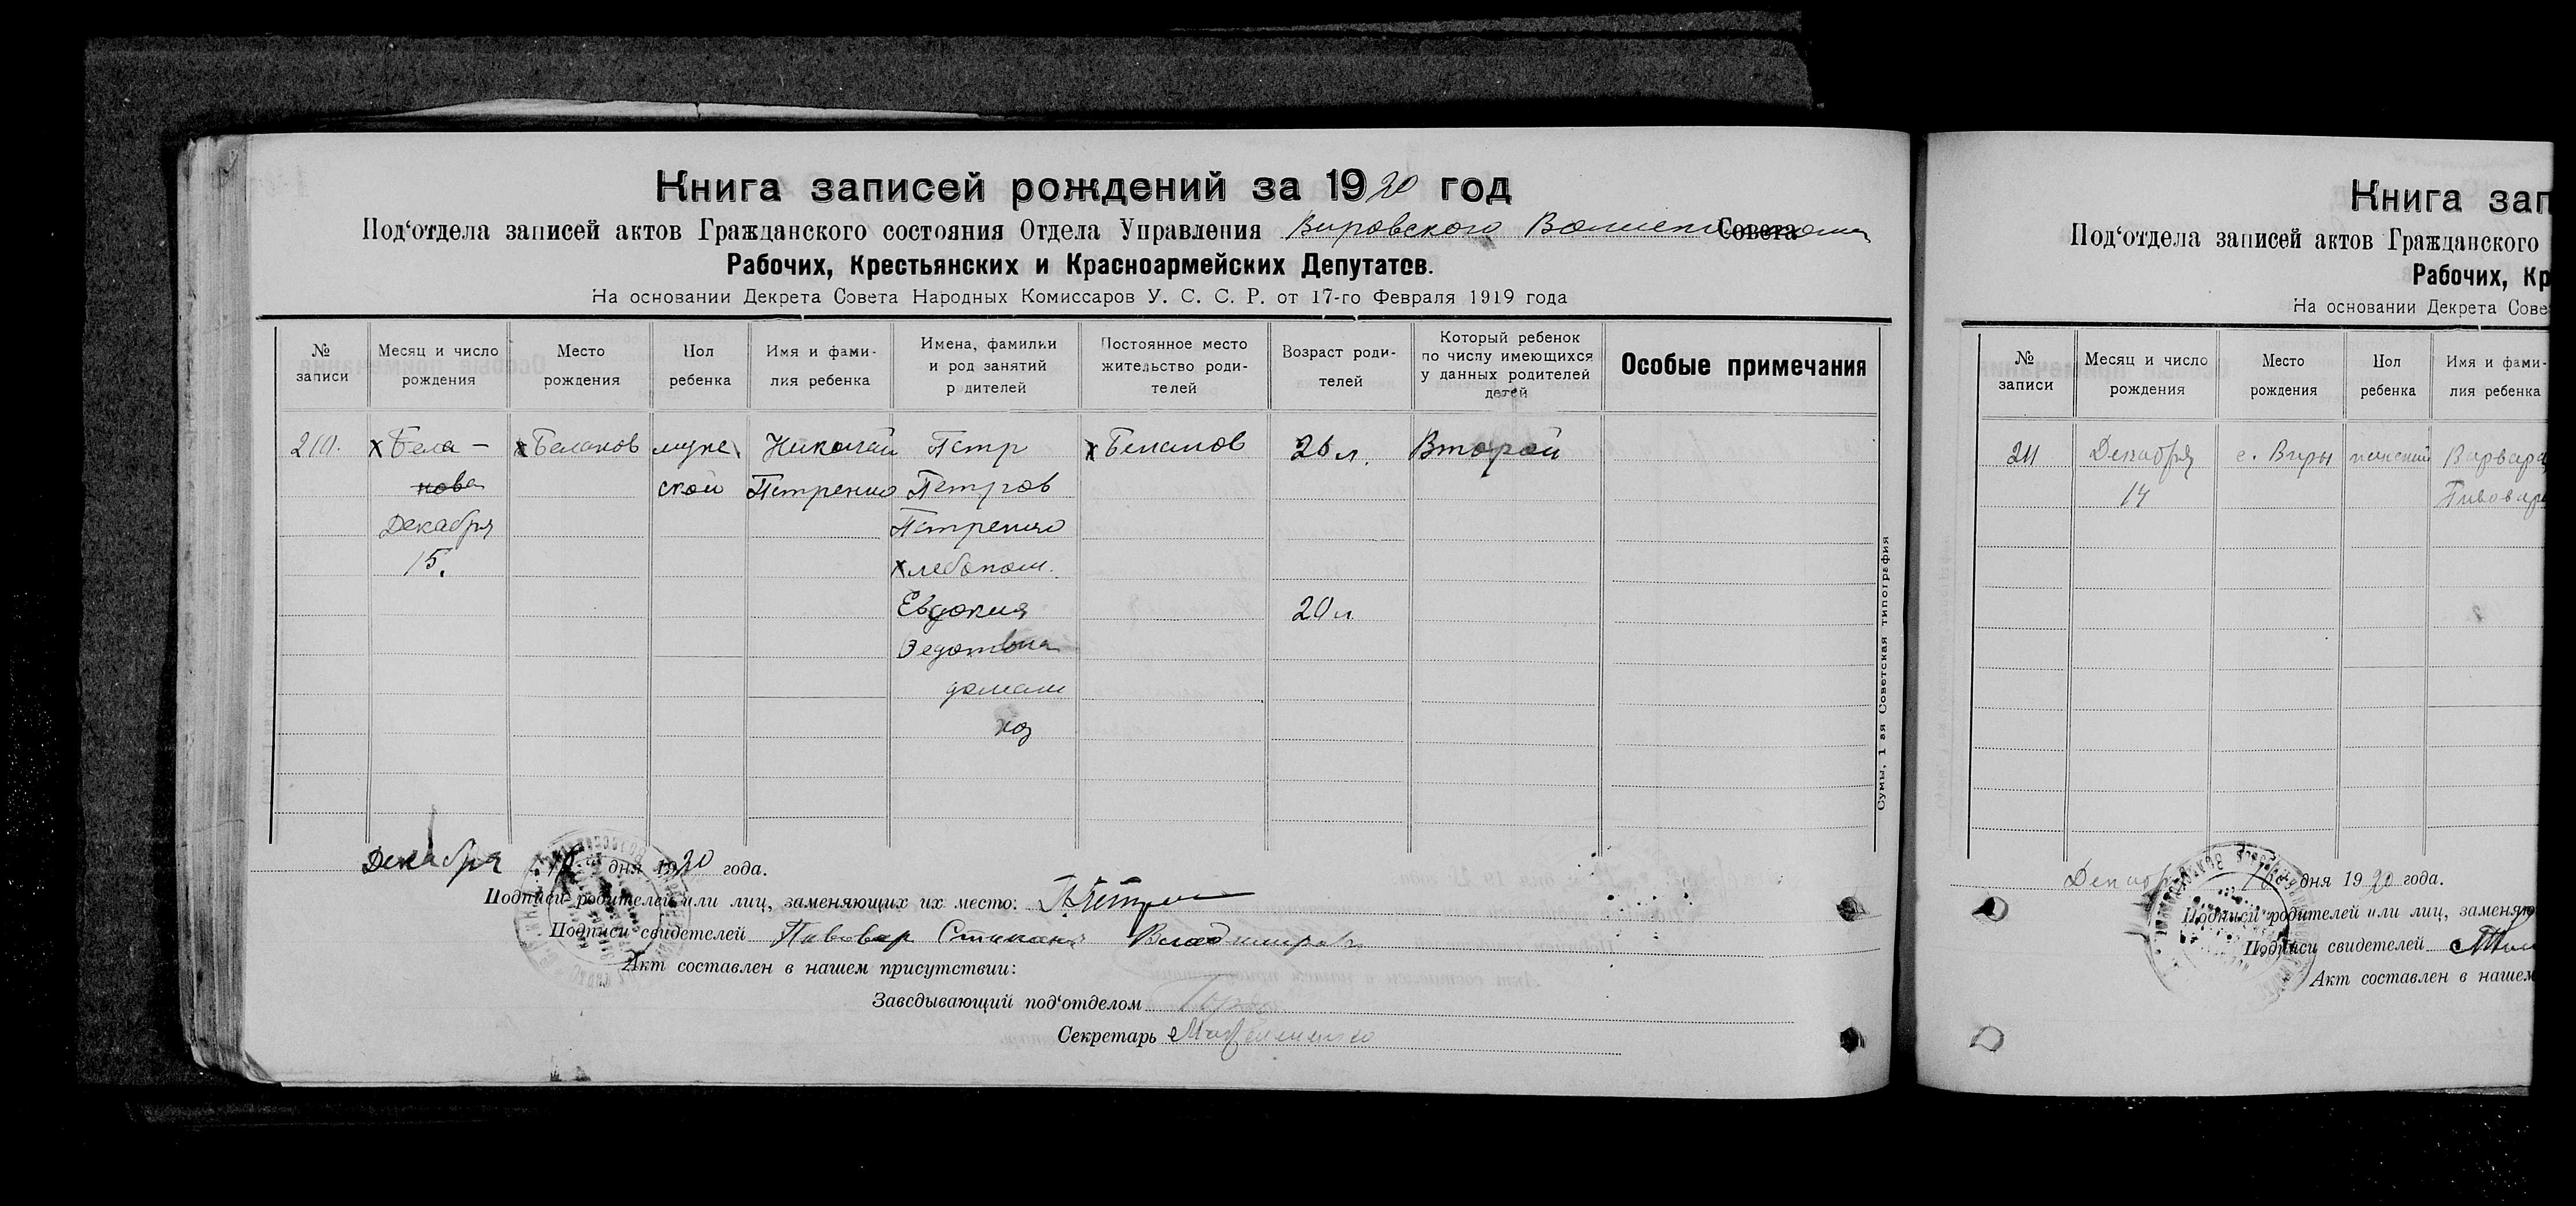 Книга записей рождений за 1920 год
Под‘отдела записей актов Гражданского состояния Отдела Управления Вировского Совета
Рабочих, Крестьянских и Красноармейских Депутатов.
На основании Декрета Совета Народных Комиссаров У. С. С. Р. от 17-го Февраля 1919 года
№ записи
Месяц и число рождения
Место рождения
Пол ребенка
Имя и фами-
лия ребенка
Имена, фамилии
и род занятий
р дителей
Постоянное место
жительство роди-
телей
Возраст роди-
телей
Который ребенок
по числу имеющихся
у данных родителей
детей
Особые примечания
210.
х Бела-
нова
Декабря
15.
х Беланов
мужс
ской
Николай
Петренко
Петр
Петров
Петренко
хлебопаш.
Евдокия
Федотовна
домаш
хоз
х Беланов
26 л.
20 л
Второй
Сумы, 1 ая Советская типография
Декабря дня 1920 года.
Подписи родителей или лиц, заменяющих их место:
Подписи свидетелей Пивовар Степан Владимиров
Акт составлен в нашем присутствии:
Заведывающий под‘отделом
Секретарь
Книга зап
Под‘отдела записей актов Гражданского
Рабочих, Кр
На основании Декрета Сове
№ записи
Месяц и число
рождения
Место
рождения
Пол
ребенка
Имя и фами-
лия ребенка
211
Декабря
14
с. Виры
женский
Варвара
Пивовар
Декабря 16 дня 1920 года.
Подписи родителей или лиц, заменяю
Подписи свидетелей
Акт составлен в нашем